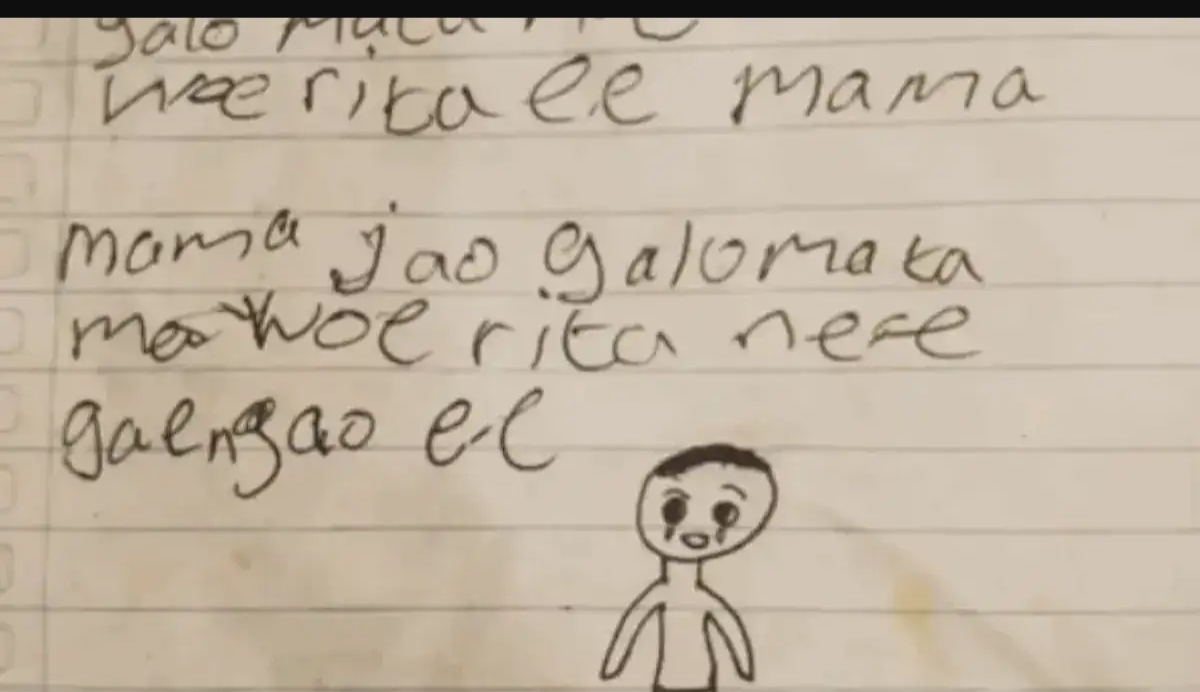 galo mata
woe rita ee mama
mama jao galo mata
mo woe rita ne-e
gaengao ee